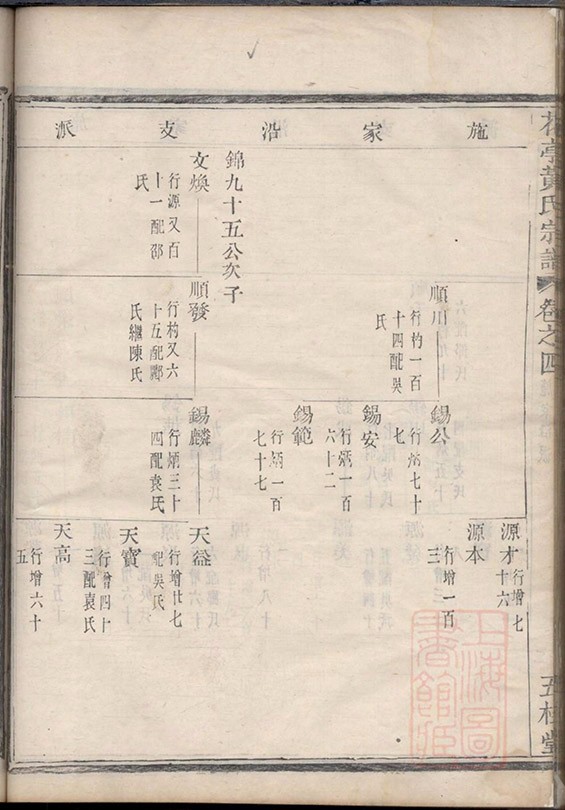 黃氏宗譜
卷之四
五桂堂
施家沿支派
順川
行杓一百
十四配吳
氏
錫公
行炳七十
七
源才
行增七
十六
源本
行增一百
三
錫安
行炳一百
六十二
錫範
行炳一百
七十七
錦九十五公次子
文煥
行源又百
十一配邵
氏
順發
行杓又六
十五配鄭
氏繼陳氏
錫麟
行炳三十
四配袁氏
天益
行增廿七
配吳氏
天寶
行增四十
三配袁氏
天高
行增六十
五
上海圖書館藏